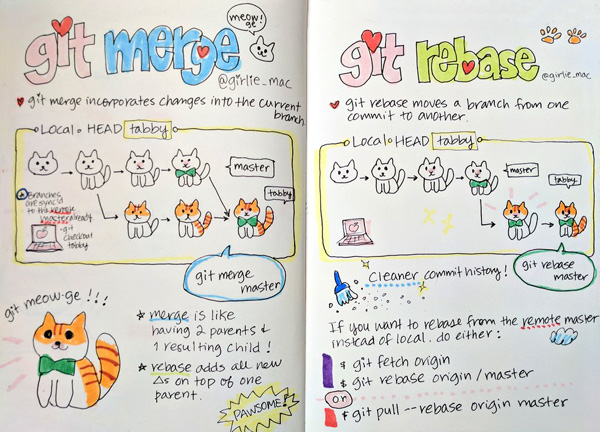 git merge
meow!
ge
@girlie_mac
git merge incorporates changes into the current
branch.
Local HEAD tabby
master
tabby
Branches
are sync'd
to the remote
master already
git
checkout
tabby
git merge
master
git meow-ge!!!
merge is like
having 2 parents &
1 resulting child!
rebase adds all new
Δs on top of one
parent.
PAWSOME!
git rebase
@girlie_mac
git rebase moves a branch from one
commit to another.
Local HEAD tabby
master
tabby
git rebase
master
Cleaner commit history!
If you want to rebase from the remote master
instead of local, do either:
$ git fetch origin
$ git rebase origin/master
or
$ git pull --rebase origin master